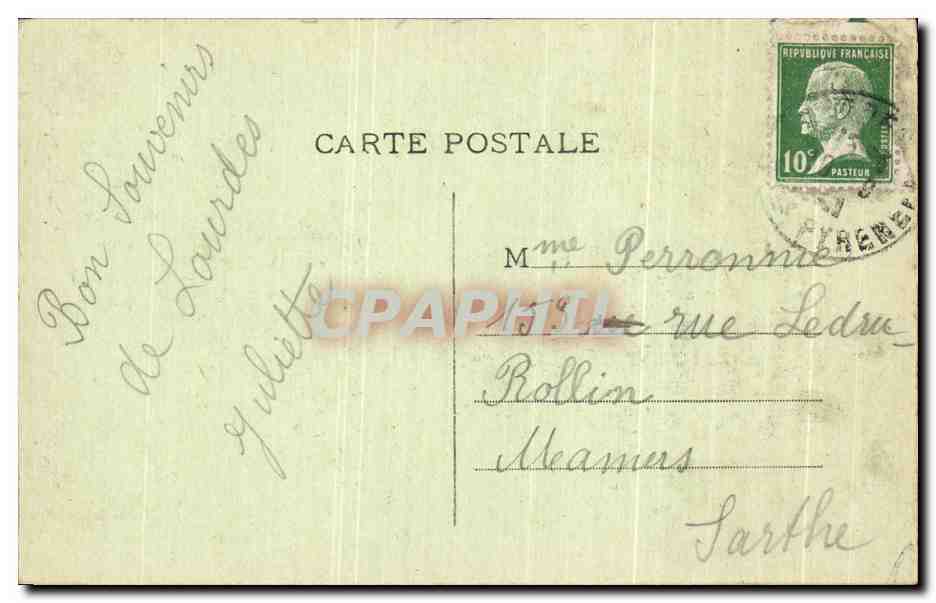 Bon Souvenirs
de Lourdes
Juliette
CARTE POSTALE
REPUBLIQUE FRANÇAISE
10c
POSTES
PASTEUR
PYRENEES
Mme Perronnie
rue Ledru-
Rollin
Mamers
Sarthe
CPAPHIL